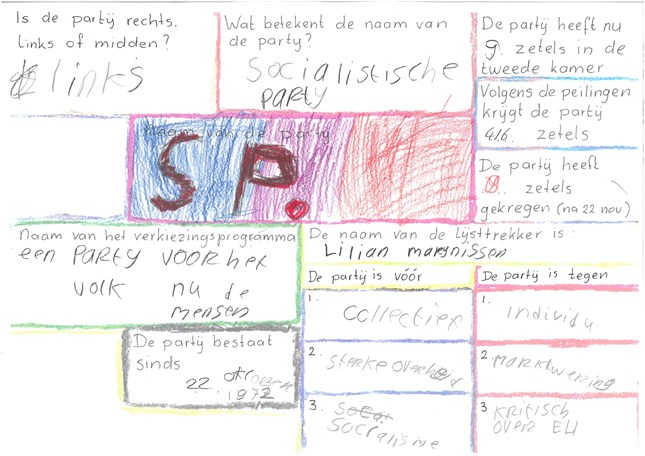 Is de partij rechts.
Links of midden?
links
Wat betekent de naam van
de party?
Socialistische
party
De partij heeft nu
9. zetels in de
tweede kamer
Volgens de peilingen
krijgt de partij
416. zetels
Naam van de party
SP.
De partij heeft
zetels
gekregen (na 22 nov)
Naam van het verkiezingsprogramma
een Party voor het
volk nu de
mensen
De naam van de lijsttrekker is:
Lilian marynissen
De partij is vóór
1. Collectief
2. sterke overheid
3. socialisme
De partij is tegen
1. individu
2. marktwering
3 kritisch
over EU
De partij bestaat
sinds
22
1972